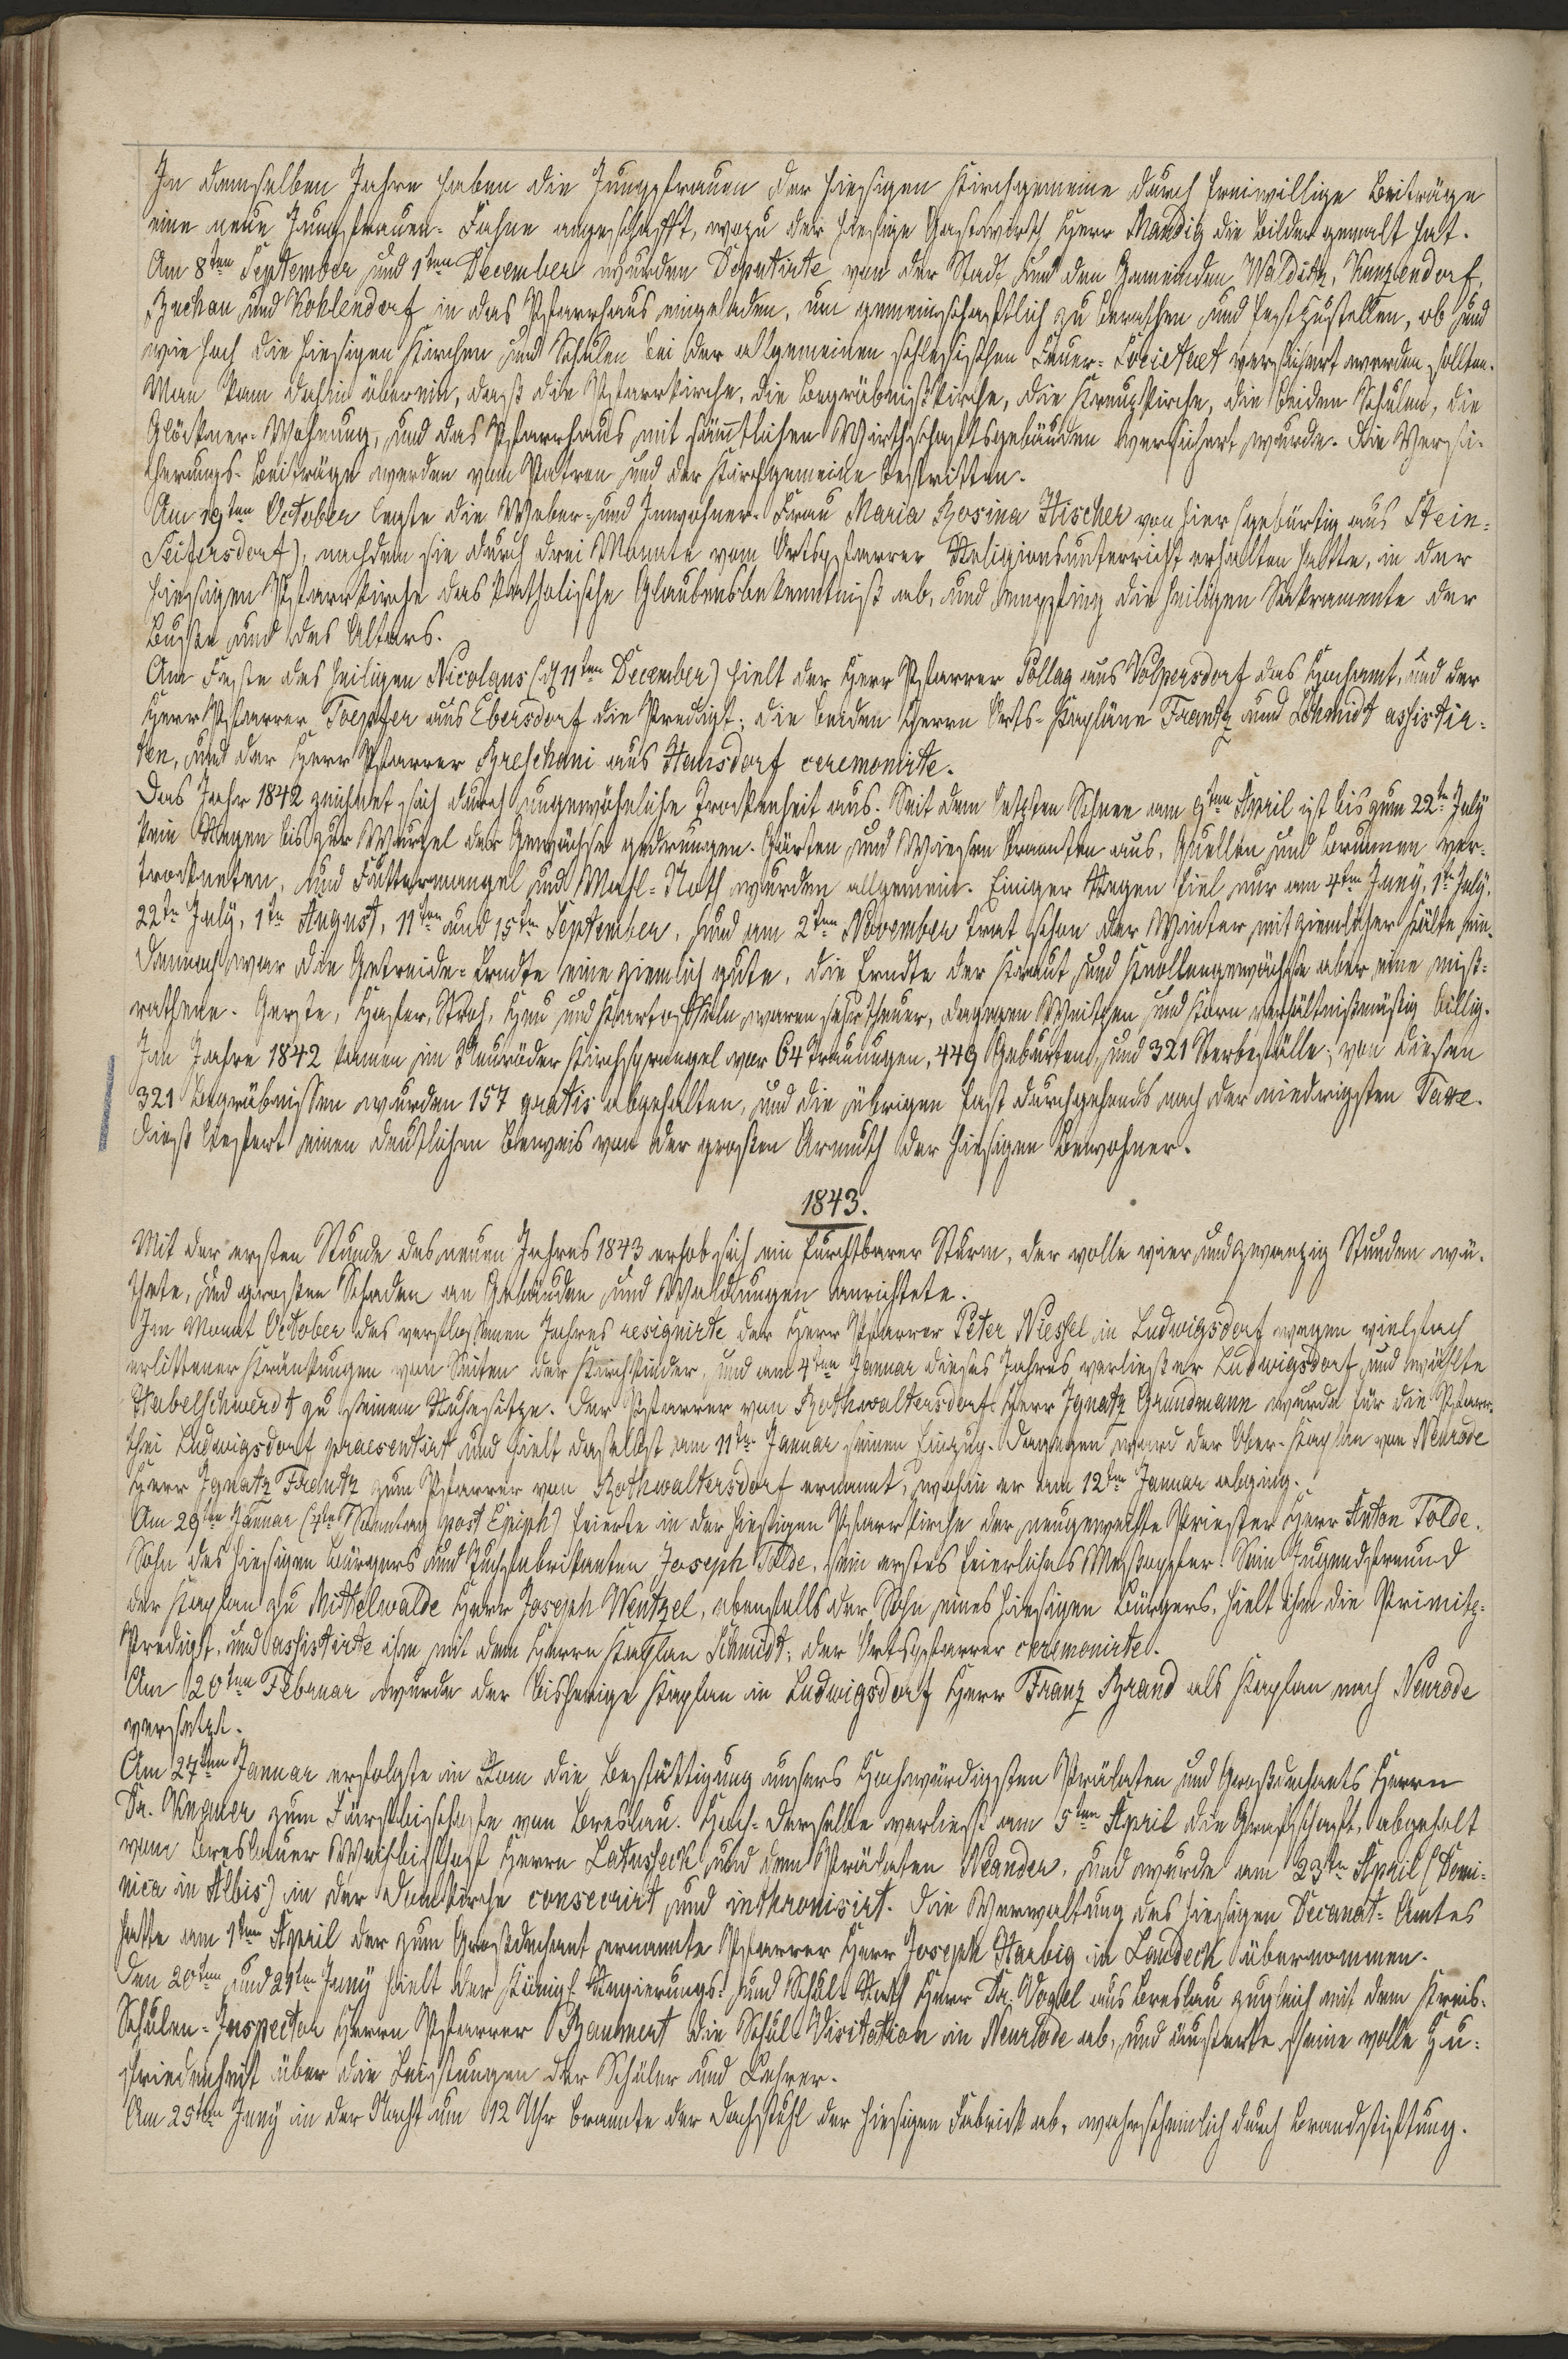 In demselben Jahre haben die Jungfrauen der hiesigen Kirchgemeine durch freiwillige Beiträge
eine neue Jungfrauen-Fahne angeschafft, wozu der hiesige Gastwirth Herr Mandig die Bilder gemalt hat.
Am 8ten September und 1ten December wurden Deputirte von der Stadt und den Gemeinden Walditz, Kunzendorf,
Buchau und Kohlendorf in das Pfarrhaus eingeladen, um gemeinschaftlich zu berathen und festzustellen, ob und
wie hoch die hiesigen Kirchen und Schulen bei der allgemeinen schlesischen Feuer-Societaet versichert werden sollten.
Man kam dahin überein, daß die Pfarrkirche, die Begräbnißkirche, die Kreuzkirche, die beiden Schulen, die
Glöckner-Wohnung, und das Pfarrhaus mit sämtlichen Wirthschaftsgebäuden versichert wurde. Die Versi-
cherungs-Beiträge werden vom Patron und der Kirchgemeine bestritten.
Am 19ten October legte die Weber- und Inwohner-Frau Maria Rosina Hischer von hier (gebürtig aus Stein-
Seifersdorf), nachdem sie durch drei Monate vom Ortspfarrer Religionsunterricht erhalten hatte, in der
hiesigen Pfarrkirche das katholische Glaubensbekenntniß ab, und empfing die heiligen Sakramente der
Buße und des Altars.
Am Feste des heiligen Nicolaus (d 11ten December) hielt der Herr Pfarrer Pollag aus Volpersdorf das Hochamt, und der
Herr Pfarrer Toepfer aus Ebersdorf die Predigt; die beiden Herrn Orts-Kapläne Frantz und Schmidt assistir-
ten, und der Herr Pfarrer Breschani aus Hausdorf ceremonirte.
Das Jahr 1842 zeichnet sich durch ungewöhnliche Trockenheit aus. Seit dem letzten Schnee am 9ten April ist bis zum 22ten July
kein Regen bis zur Wurzel der Gewächse gedrungen. Gärten und Wiesen brannten aus, Quellen und Brunnen ver-
trockneten, und Futtermangel und Mahl-Noth wurden allgemein. Einiger Regen fiel nur am 4ten Juny, 1ten July,
22ten July, 1ten August, 11ten und 15ten September, und am 2ten November trat schon der Winter mit ziemlicher Kälte ein.
Dennoch war die Getreide-Erndte eine ziemlich gute, die Erndte der Kraut und Knollengewächse aber eine miß-
rathene. Gerste, Hafer, Stroh, Heu und Kartoffeln waren sehr theuer, dagegen Weitzen und Korn verhältnißmäßig billig.
Im Jahre 1842 kamen im Neuröder Kirchsprengel vor 64 Trauungen, 449 Geburten, und 321 Sterbefälle; von diesen
321 Begräbnissen wurden 157 gratis abgehalten, und die übrigen fast durchgehends nach der niedrigsten Taxe.
Dieß liefert einen deutlichen Beweis von der großen Armuth der hiesigen Bewohner.
1843.
Mit der ersten Stunde des neuen Jahres 1843 erhob sich ein furchtbarer Sturm, der volle vier und zwanzig Stunden wü-
thete, und großen Schaden an Gebäuden und Waldungen anrichtete.
Im Monat October des verflossenen Jahres resignirte der Herr Pfarrer Peter Niessel in Ludwigsdorf wegen vielfach
erlittener Kränkungen von Seiten der Kirchkinder, und am 4ten Januar dieses Jahres verließ er Ludwigsdorf und wählte
Habelschwerdt zu seinem Ruhesitze. Der Pfarrer von Rothwaltersdorf Herr Ignatz Grundmann wurde für die Pfarr-
thei Ludwigsdorf praesentirt und hielt daselbst am 11ten Januar seinen Einzug. Dagegen ward der Ober-Kaplan von Neurode
Herr Ignatz Frantz zum Pfarrer von Rothwaltersdorf ernannt, wohin er am 12ten Januar abging.
Am 29ten Januar (4ten Sonntag post Epiph) feierte in der hiesigen Pfarrkirche der neugeweihte Priester Herr Anton Tolde,
Sohn des hiesigen Bürgers und Tuchfabrikanten Joseph Tolde, sein erstes feierliches Meßopfer. Sein Jugendfreund
der Kaplan zu Mittelwalde Herr Joseph Wentzel, ebenfalls der Sohn eines hiesigen Bürgers, hielt ihm die Primitz-
Predigt, und assistirte ihm mit dem Herrn Kaplan Schmidt; der Ortspfarrer ceremonirte.
Am 20ten Februar wurde der bisherige Kaplan in Ludwigsdorf Herr Franz Brand als Kaplan nach Neurode
versetzt.
Am 27ten Januar erfolgte in Rom die Bestättigung unsers Hochwürdigsten Prälaten und Großdechants Herrn
Dr. Knauer zum Fürstbischofe von Breslau. Hoch-Derselbe verließ am 5ten April die Grafschaft, abgeholt
vom Breslauer Weihbischof Herrn Latusseck und dem Prälaten Neander, und wurde am 23ten April (Domi-
nica in Albis) in der Domkirche consecrirt und inthronisirt. Die Verwaltung des hiesigen Decanat-Amtes
hatte am 1ten April der zum Großdechant ernannte Pfarrer Herr Joseph Harbig in Landeck übernommen.
Den 20ten und 21ten Juny hielt der Königl. Regierungs- und Schul-Rath Herr Dr. Vogel aus Breslau zugleich mit dem Kreis-
Schulen-Inspector Herrn Pfarrer Baumert die Schul-Visitation in Neurode ab, und äußerte seine volle Zu-
friedenheit über die Leistungen der Schüler und Lehrer.
Am 25ten Juny in der Nacht um 12 Uhr brannte der Dachstuhl der hiesigen Fabrick ab, wahrscheinlich durch Brandstiftung.